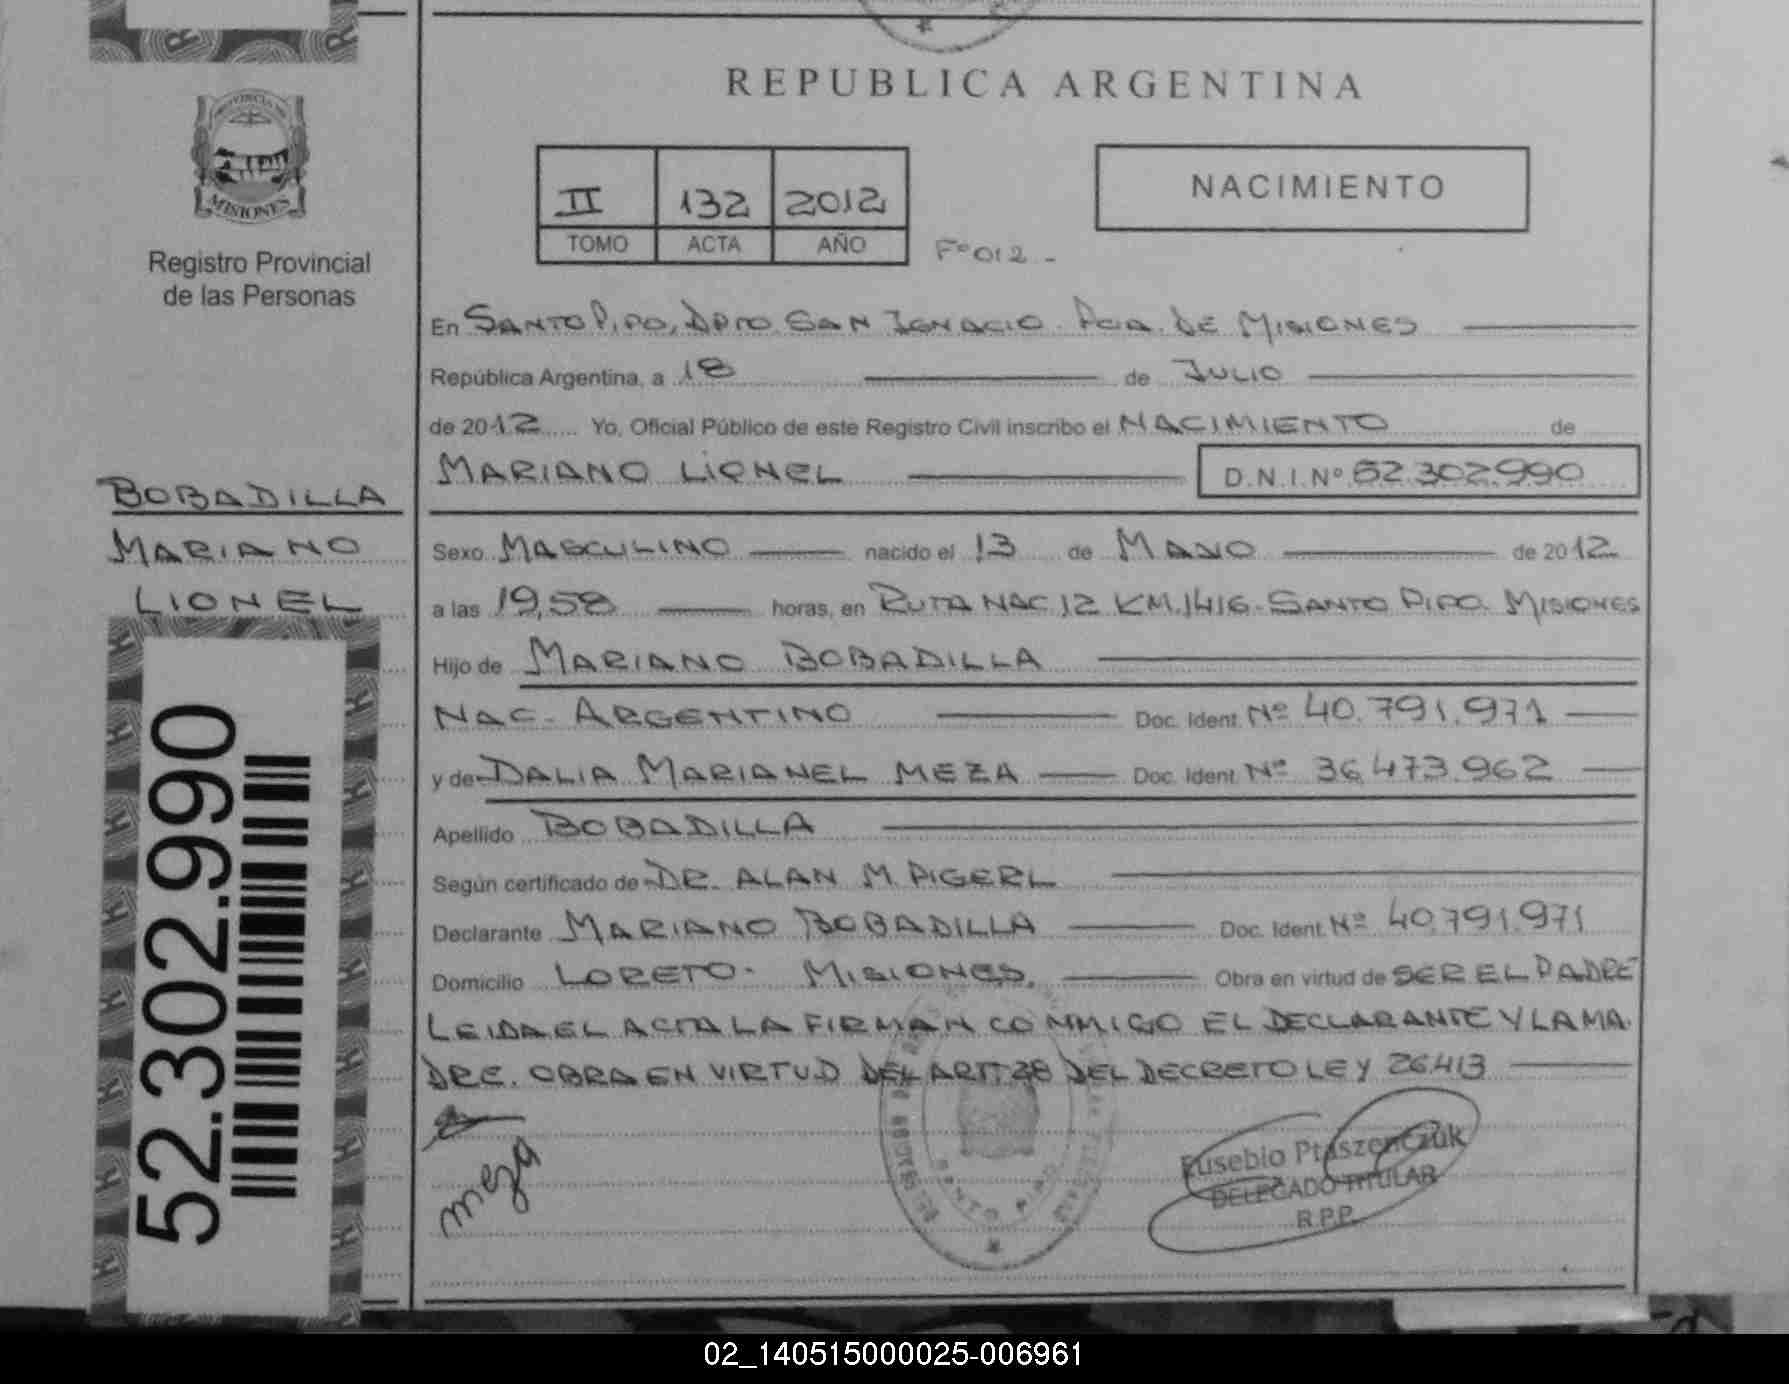 REPUBLICA ARGENTINA
PROVINCIA DE
MISIONES
Registro Provincial
de las Personas
II 132 2012
TOMO ACTA AÑO
F° 012 -
NACIMIENTO
En SANTO PIPO, DPTO SAN IGNACIO. PCIA. DE MISIONES
República Argentina, a 18 de JULIO
de 2012 Yo, Oficial Público de este Registro Civil inscribo el NACIMIENTO de
MARIANO LIONEL D.N.I. Nº 52.302.990
BOBADILLA
MARIANO
LIONEL
Sexo MASCULINO nacido el 13 de MAYO de 2012
a las 19,58 horas, en RUTA NAC 12 KM. 1416. SANTO PIPO. MISIONES
Hijo de MARIANO BOBADILLA
NAC. ARGENTINO Doc. Ident. Nº 40.791.971
y de DALIA MARIANEL MEZA Doc. Ident. Nº 36.473.962
Apellido BOBADILLA
Según certificado de DR. ALAN M. PIGERL
Declarante MARIANO BOBADILLA Doc. Ident. Nº 40.791.971
Domicilio LORETO. MISIONES. Obra en virtud de SER EL PADRE
LEIDA EL ACTA LA FIRMAN CONMIGO EL DECLARANTE Y LA MA
DRE. OBRA EN VIRTUD DEL ART. 28 DEL DECRETO LEY 26413
meza
Eusebio Ptaszenczuk
DELEGADO TITULAR
R.P.P.
52.302.990
02_140515000025-006961